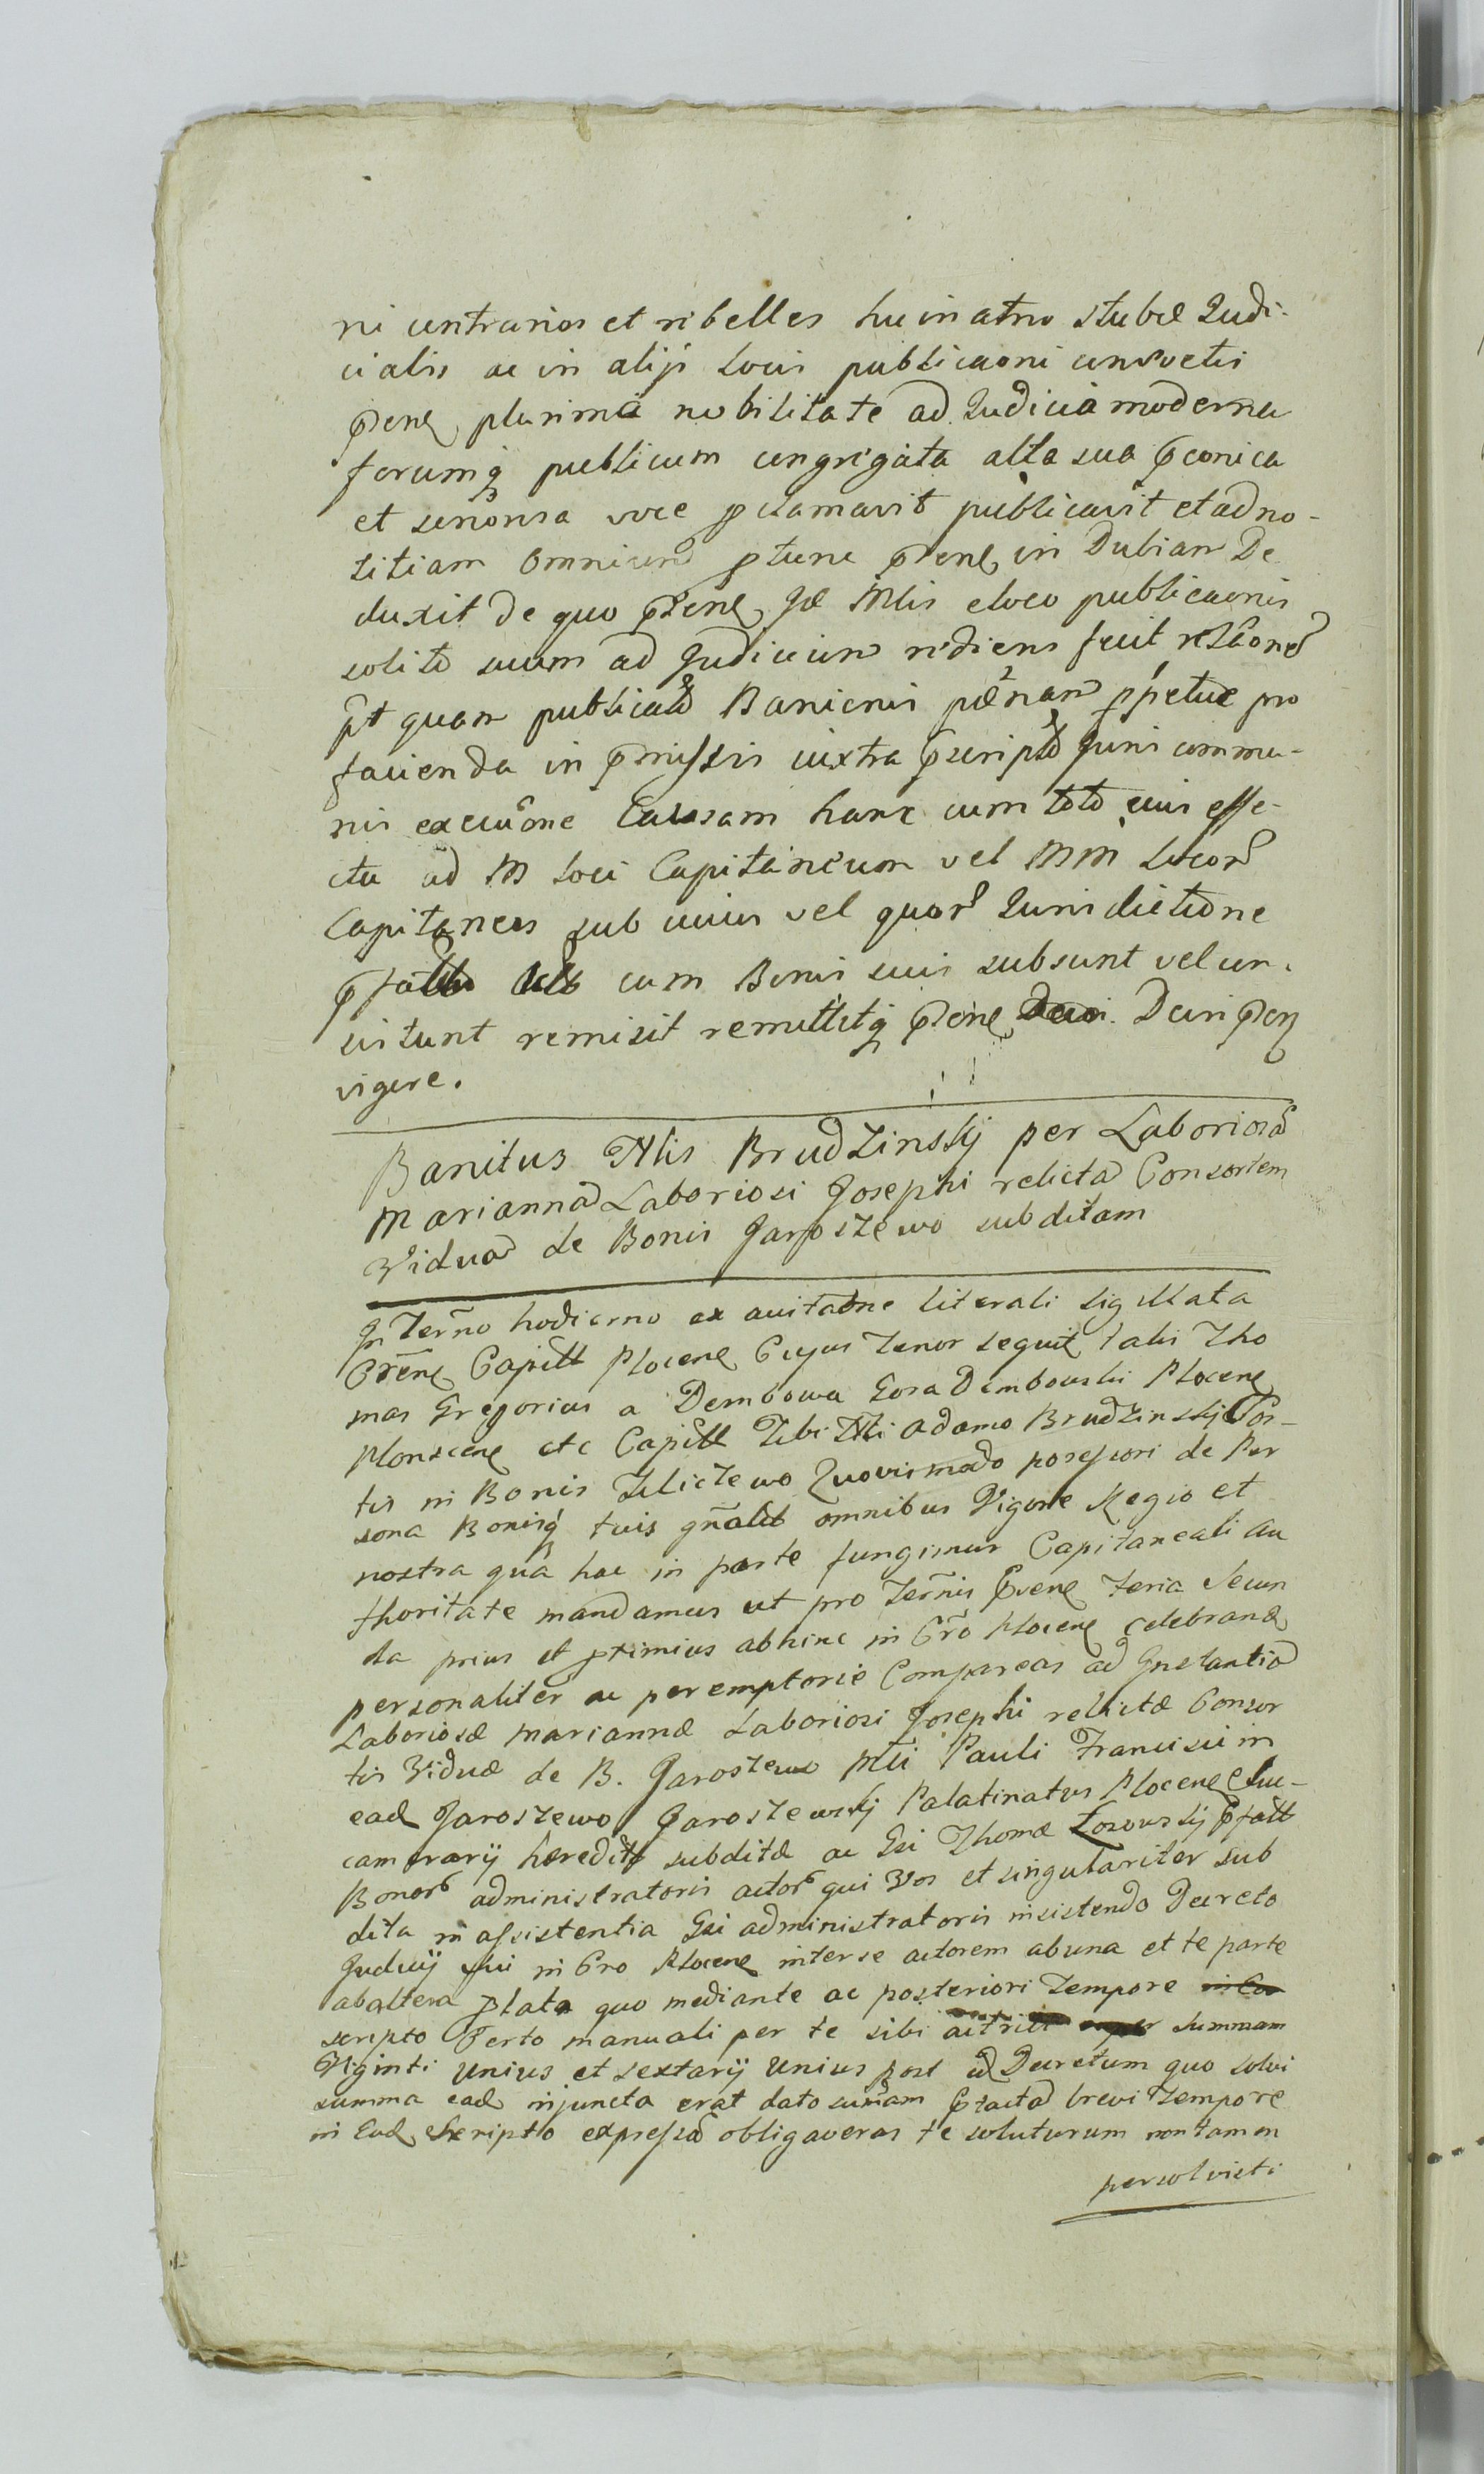 ni contrarios et ribelles hic in atrio stubae Judi-
cialis ac in alijs Locis publicaoni consvetis
pden plurima nobilitate ad Judicia moderna
forumq publicum congregata alta sua pconica
et sonora voce pclamavit publicavit et ad no-
titiam omnium ptunc pden in Dubiam De
duxit de quo pden Ge Mlis e loco publicaonis
solito suum ad Judicium rediens fecit relaone
pt quam publicata Banionis poenam ppetuae pro
facienda in pmissis iuxta pscripto Juris commu-
nis execuone Causam hanc cum toto eius effe-
ctu ad M Loci Capitaneum vel MM Locor
Capitaneos sub cuius vel quor Jurisdictione
pfatt cum Bonis suis subsunt vel con-
sistunt remisit remittitq pden Decri pden
vigore.
Banitus Nlis Brudzinskij per Laboriosa
Marianna Laboriosi Josephi relicta Consortem
Vidua de Bonis Jaroszewo subditam
In Terno hodierno ex citatone literali sigillata
Oren Capitt Plocen Cujus tenor sequit talis Tho
mas Gregorius a Dembowa Gora Dembowski Plocen
Plonscen etc Capitt Tibi Nli Adamo Brudzinskij Por-
tis in Bonis Zelictewo Quovismodo possessori de Per
sona Bonisq tuis gnalit omnibus Vigore Regio et
nostra qua hac in parte fungimur Capitaneali Au
thoritate mandamus ut pro Ternis Oren feria Secun
da prius et ptimius abhinc in Cro Plocen celebrand
personaliter ac peremptorie Compareas ad Instantia
Laboriosae Mariannae Laboriosi Josephi relictae Consor
tis Viduae de B. Jaroszewo Mci Pauli Francisci in
ead Jaroszewo Jaroszewskij Palatinatus Plocen Suc-
camerarij haereditt subditae ac Gsi Thomae Losowskij pfatt
Bonor administratoris actor qui Vos et singulariter sub
dita in assistentia Gsi administratoris insistendo Decreto
Judicij sui in Cro Plocen inter se actorem ab una et te parte
ab altera plata quo mediante ac posteriori Tempore in Co
scripto Certo manuali per te sibi actrici super Summam
Viginti Unius et sextarij Unius post id Decretum quo solvi
summa ead injuncta erat dato sumam ptacta brevi tempore
in Eod Scripto expressa obligaveras te soluturum non tamen
persolvisti